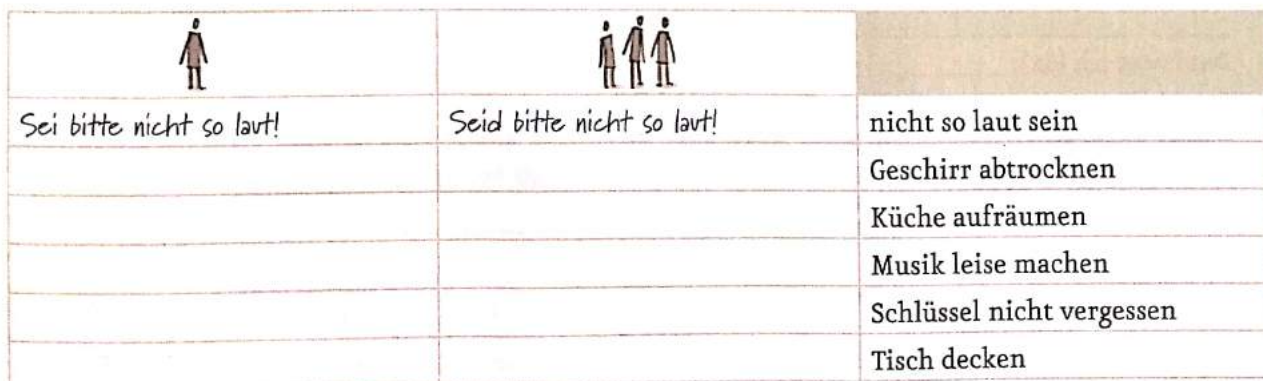 Sei bitte nicht so laut! Seid bitte nicht so laut! nicht so laut sein
Geschirr abtrocknen
Küche aufräumen
Musik leise machen
Schlüssel nicht vergessen
Tisch decken